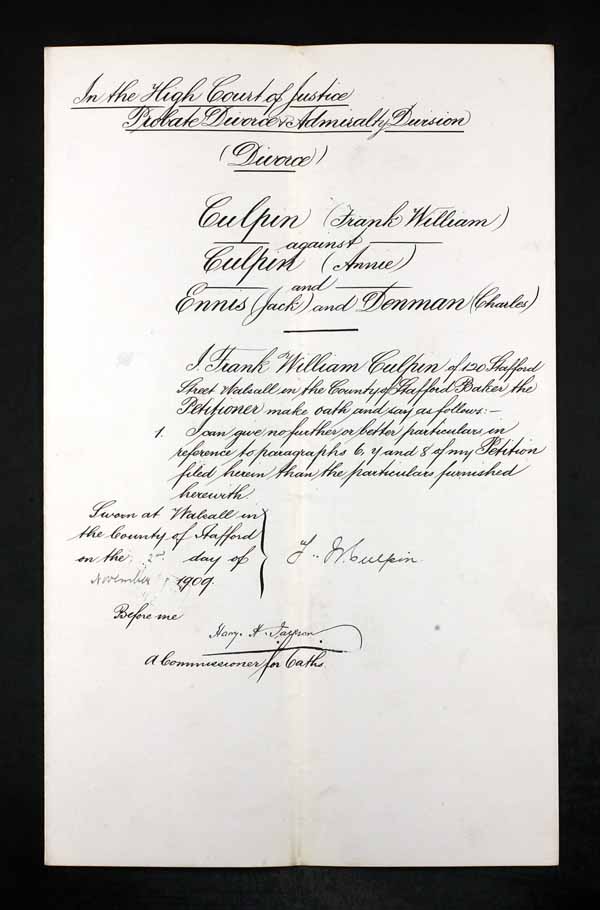 In the High Court of Justice
Probate Divorce & Admiralty Division
(Divorce)
Culpin (Frank William)
against
Culpin (Annie)
and
Ennis (Jack) and Denman (Charles)
I Frank William Culpin of 120 Stafford
Street Walsall in the County of Stafford Baker, the
Petitioner make oath and say as follows:-
1. I can give no further or better particulars in
reference to paragraphs 6, 7 and 8 of my Petition
filed herein than the particulars furnished
herewith.
Sworn at Walsall in
the County of Stafford
on the 2nd day of
November, 1909.
F. W. Culpin.
Before me
Harry A.
A Commissioner for Oaths.